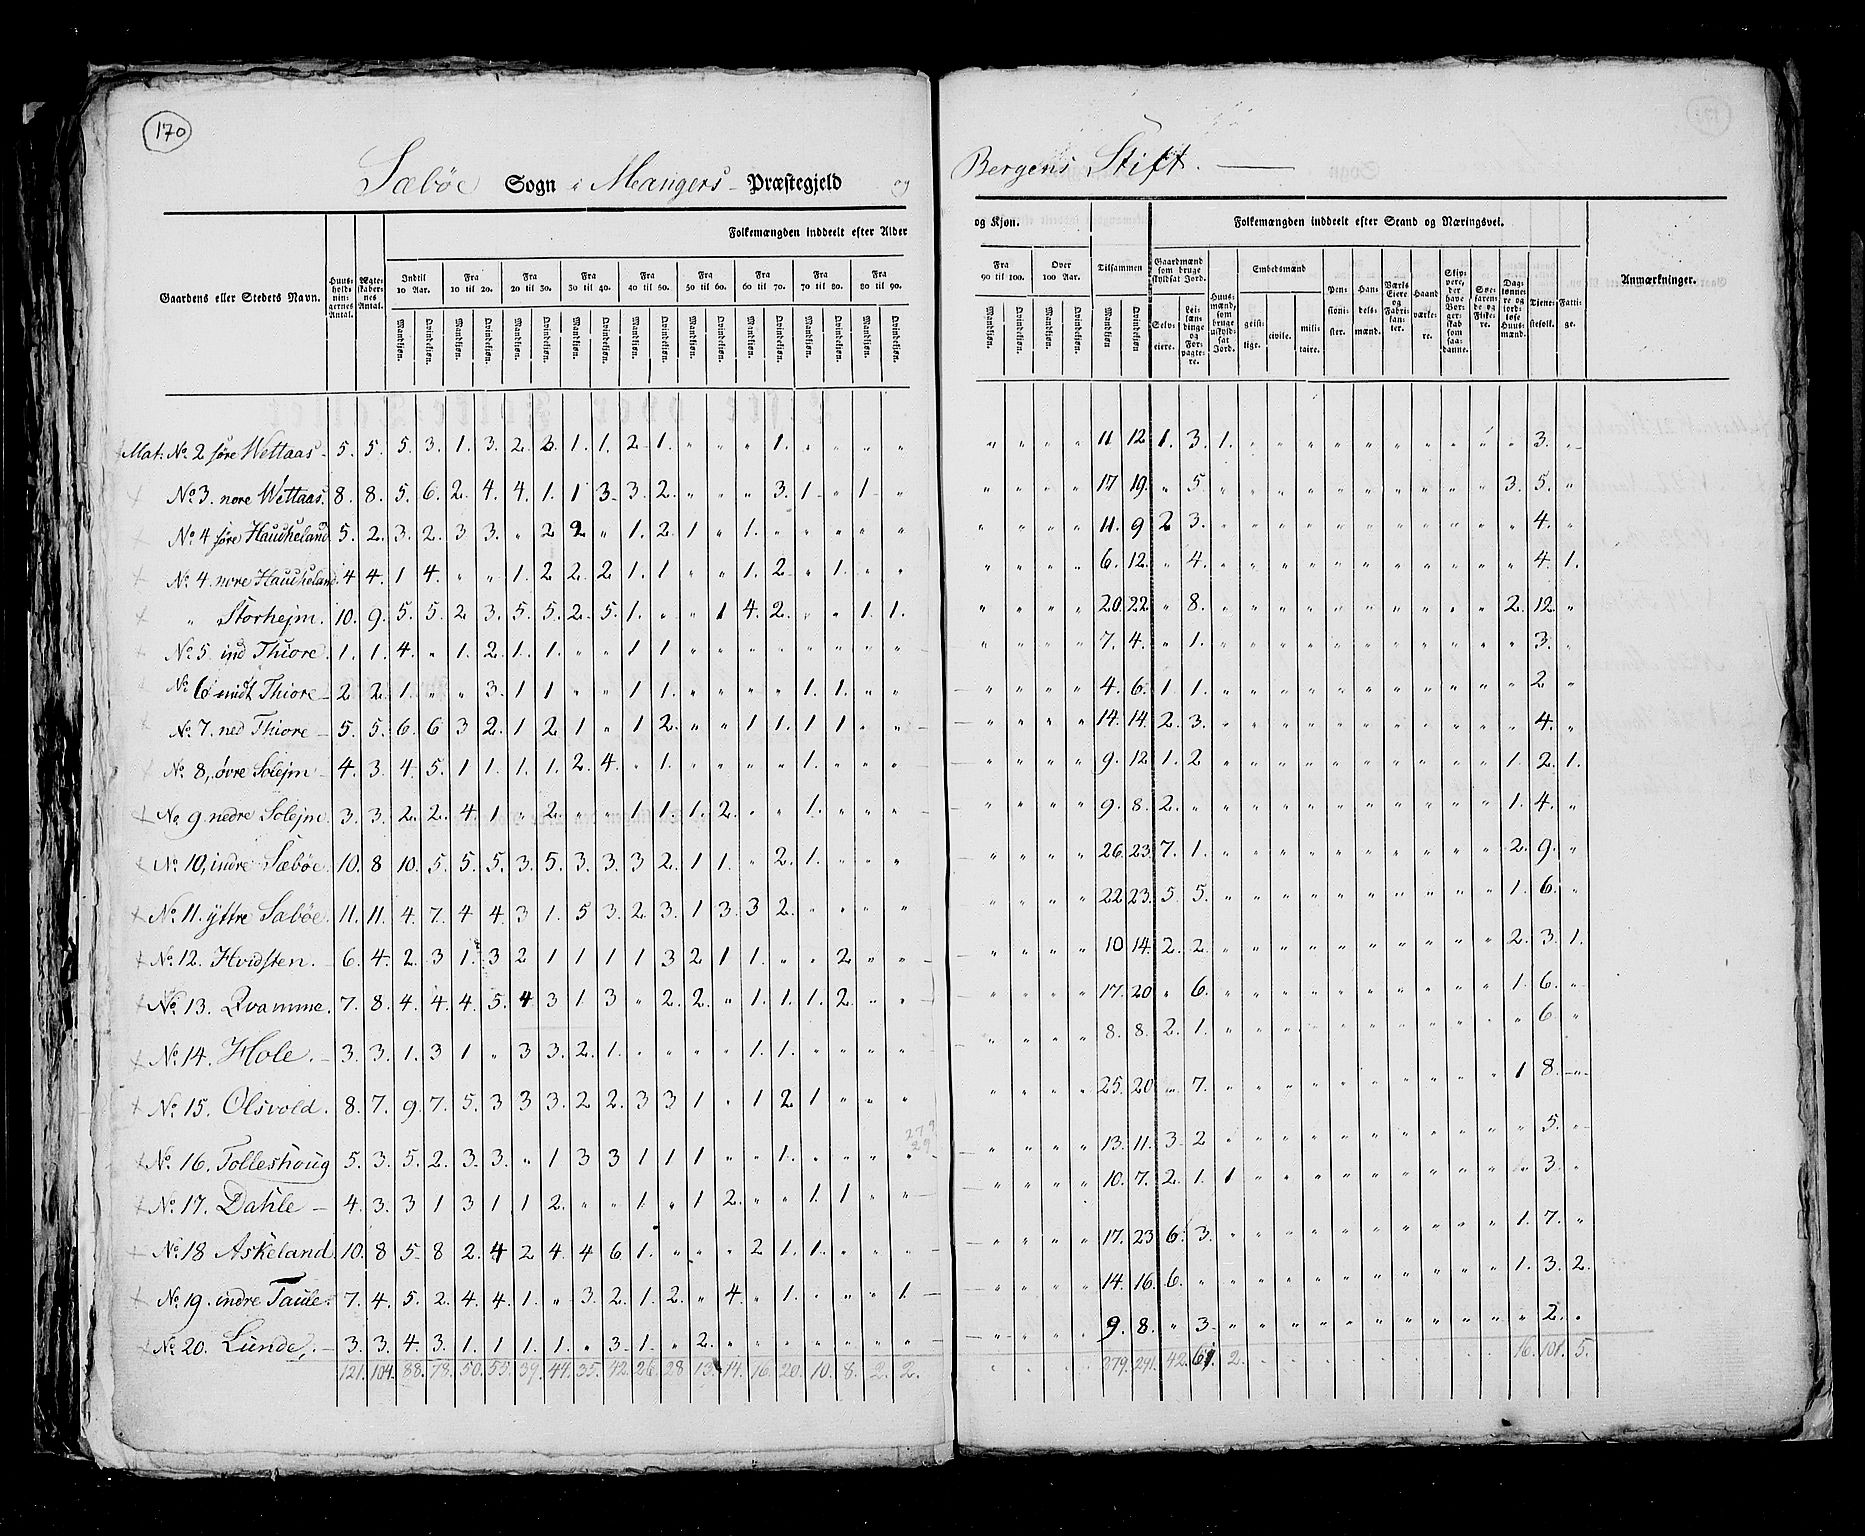 170
Sæbøe Sogn i Mangers Præstegjeld og Bergens Stift.
Folkemængden inddeelt efter Alder og Kjøn. Folkemængden inddeelt efter Stand og Næringsvei.
Gaardens eller Stedets Navn. Huus-holdnin-gernes Antal. Ægte-skaber-nes Antal.
Indtil 10 Aar. Fra 10 til 20. Fra 20 til 30. Fra 30 til 40. Fra 40 til 50. Fra 50 til 60. Fra 60 til 70. Fra 70 til 80. Fra 80 til 90. Fra 90 til 100. Over 100 Aar. Tilsammen
Mandkjøn. Qvindekjøn.
Gaardmænd som bruge skyldsat Jord. Selv-eiere. Lei-læn-dinge og For-pagte-re. Huus-mænd, som bruge uskyld-sat Jord. Embedsmænd geist-lige. civile. mili-taire. Pen-sioni-ster. Han-dels-mænd. Værks Eiere og Fabri-kan-ter. Haand værke-re. Søe-faren-de og Fiske-re. Tjene-stefolk. Fatti-ge. Anmærkninger.
Mat. No. 2 søre Wettaas 5. 5. 5. 3. 1. 3. 2. 3. 1. 1. 2. 1. " " " 1. " " " " " " " " 11 12 1. 3. 1. " " " " " " " " " " 3. "
No. 3. nore Wettaas. 8. 8. 5. 6. 2. 4. 4. 1. 1 3. 3. 2. " " " 3. 1 " 1 " " " " " 17 19. " 5. " " " " " " " " " " 3. 5. "
No. 4 søre Haudheland 5. 2. 3. 2. 3 3. " 2 2. " 1. 2. 1 " 1. " " " " " " " " " 11. 9 2 3. " " " " " " " " " " " 4. "
No. 4. nore Haudheland. 4 4. 1 4. " " 1. 2 2. 2 1. 1 " " 1. 2 " 1. " " " " " " 6. 12. " 4. " " " " " " " " " " " 4. 1.
" Storhejm. 10. 9. 5. 5. 2 3. 5. 5. 2. 5. 1. " " 1 4. 2. " " 1. 1. " " " " 20. 22 " 8. " " " " " " " " " " 2. 12. "
No. 5. ind Thiore. 1. 1. 4. " 1. 2. 1. 1. " " 1 1 " " " " " " " " " " " " 7. 4. " 1. " " " " " " " " " " " 3. "
No. 6 midt Thiore 2 2. 1. " " 3. 1 1 " " 1 1. " " " " 1. 1. " " " " " " 4. 6. 1. 1. " " " " " " " " " " " 2 "
No. 7. ned Thiore 5. 5. 6. 6 3 2. 1 2. 1 " 1 2. " " 1 1. 1 1 " " " " " " 14. 14. 2. 3. " " " " " " " " " " " 4. "
No. 8, øvre Solejm 4. 3. 4. 5. 1 1. 1. 1. 2. 4. " 1. " " " " 1. " " " " " " " 9. 12 1. 2 " " " " " " " " " " 1. 2. 1.
No. 9 nedre Solejm. 3. 3. 2. 2. 4. 1 " 2. " " 1 1. 1. 2. " " 1. " " " " " " " 9. 8. 2. " " " " " " " " " " " 1. 4. "
No. 10, indre Sæbøe. 10. 8 10. 5 5. 5 3. 5. 3. 3. 3 2. 1 1. " 2. 1. " " " " " " " 26. 23. 7. 1. " " " " " " " " " " 2. 9. "
No. 11. yttre Sæbøe. 11. 11. 4. 7. 4 4. 3 1. 5 3. 2. 3. 1 3. 3 2. " " " " " " " " 22 23. 5 5. " " " " " " " " " " 1. 6. "
No. 12. Hvidsten. 6. 4. 2. 3 1. 3 2 1 1 1 1 3 2 1 1. " " 2 " " " " " " 10 14. 2. 2. " " " " " " " " " " 2. 3. 1.
No. 13. Qvamme. 7. 8. 4. 4. 4. 5. 4 3 1 3 " 2. 2. " 1. 1. 1. 2. " " " " " " 17. 20 " 6. " " " " " " " " " " 1. 6. "
No. 14. Hole. 3. 3. 1. 3 1 " 3 3. 2. 1. " " " " 1. 1. " " " " " " " " 8. 8. 2. 1. " " " " " " " " " " " 6 "
No. 15. Olsvold. 8. 7. 9. 7. 5. 3 3 3. 2. 2. 3 3 1 " 1 2 1 " " " " " " " 25. 20 " 7. " " " " " " " " " " 1 8. "
No. 16. Tolleshoug 5. 3. 5. 2. 3. 3. " 1 3 3 1 1 1 " " 1. " " " " " " " " 13. 11. 3. 2 " " " " " " " " " " " 5. "
No. 17. Dahle 4. 3. 3 1 3 1 1 2. " " 1. " 1 2. " " 1. 1 " " " " " " 10. 7. 2. 1. 1 " " " " " " " " " " 3. "
No. 18 Askeland. 10. 8 5. 8 2. 4 2 4. 4 6 1. " " " 2 1. 1. " " " " " " " 17. 23 6. 3. " " " " " " " " " " 1. 7. "
No. 19. indre Taule. 7. 4. 5. 2. 4. 4. 1. " 3. 2. 1. 2. " 4. " 1. " " " 1. " " " " 14. 16. 6. " " " " " " " " " " " 1. 3. 2.
No. 20. Lunde, 3. 3. 4. 3. 1. 1. 1. 1. " 3. 1. " 2. " " " " " " " " " " " 9. 8. " 3. " " " " " " " " " " " 2. "
121. 104. 88. 78. 50. 55. 39. 44. 35. 42. 26. 28 13. 14. 16. 20. 10. 8. 2. 2. 279. 291. 42. 2. 16. 101. 5.